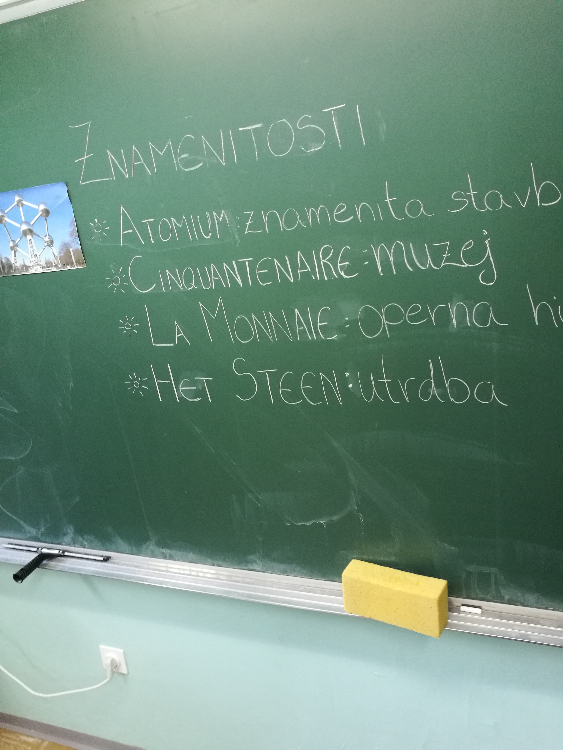 ZNAMENITOSTI
ATOMIUM: znamenita stavb
CINQUANTENAIRE: muzej
LA MONNAIE: operna hi
HET STEEN: utrdba